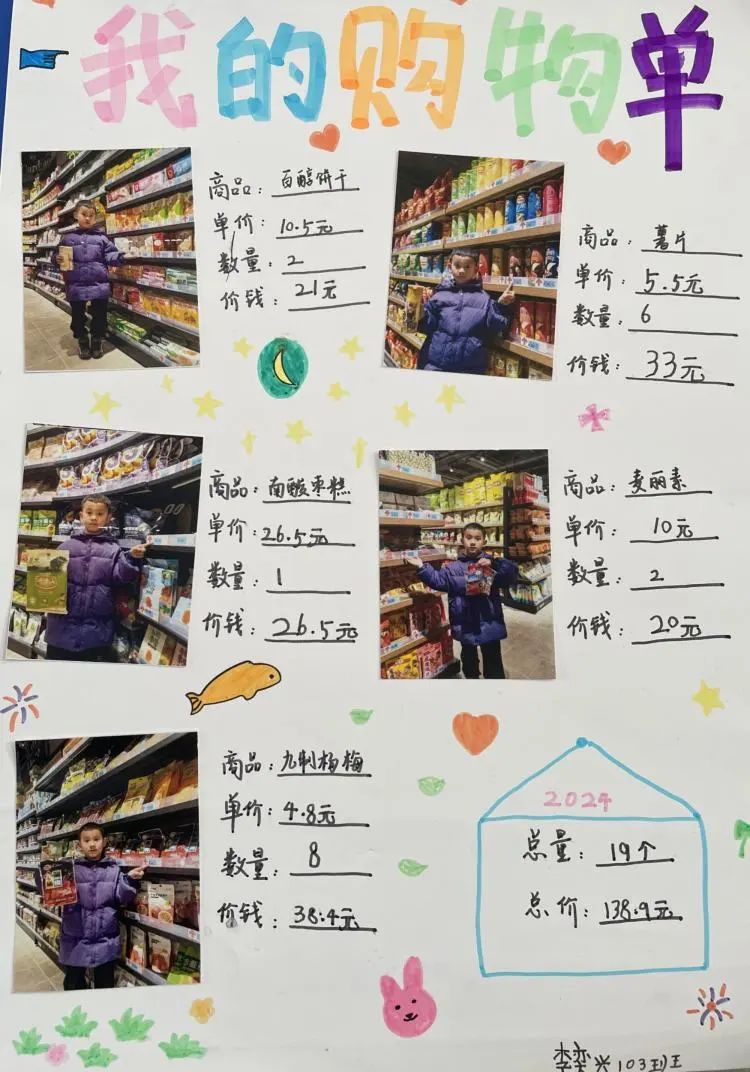 我的购物单
商品：百醇饼干
单价：10.5元
数量：2
价钱：21元
商品：薯片
单价：5.5元
数量：6
价钱：33元
商品：南酸枣糕
单价：26.5元
数量：1
价钱：26.5元
商品：麦丽素
单价：10元
数量：2
价钱：20元
商品：九制杨梅
单价：4.8元
数量：8
价钱：38.4元
2024
总量：19个
总价：138.9元
李奕兴103班